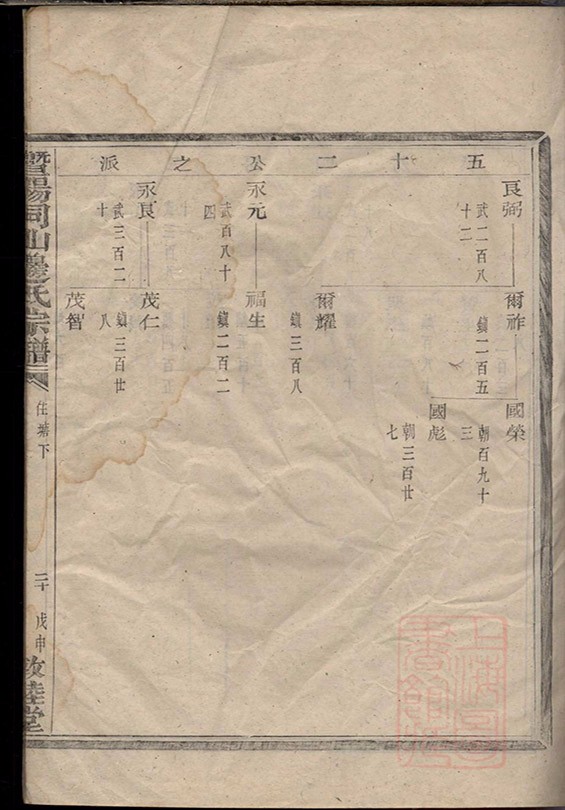 五十二公之派
良弼
武二百八
十二
爾祚
鎮二百五
國榮
朝百九十
三
國彪
朝三百廿
七
爾耀
鎮三百八
永元
武百八十
四
福生
鎮二百二
永良
武三百二
十
茂仁
鎮三百廿
八
茂智
暨陽同山邊氏宗譜
住塘下
二十
戊申
敦睦堂
上海圖書館藏